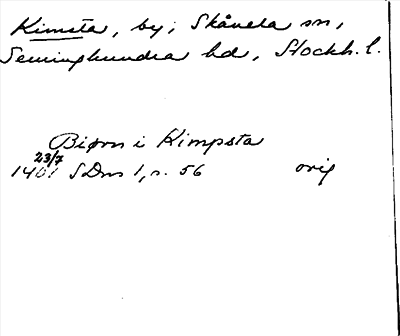 Kimsta, by; Skånela sn,
Seminghundra hd, Stockh. l.
Biørn i Kimpsta
23/7
1401 SDns 1, s. 56 orig